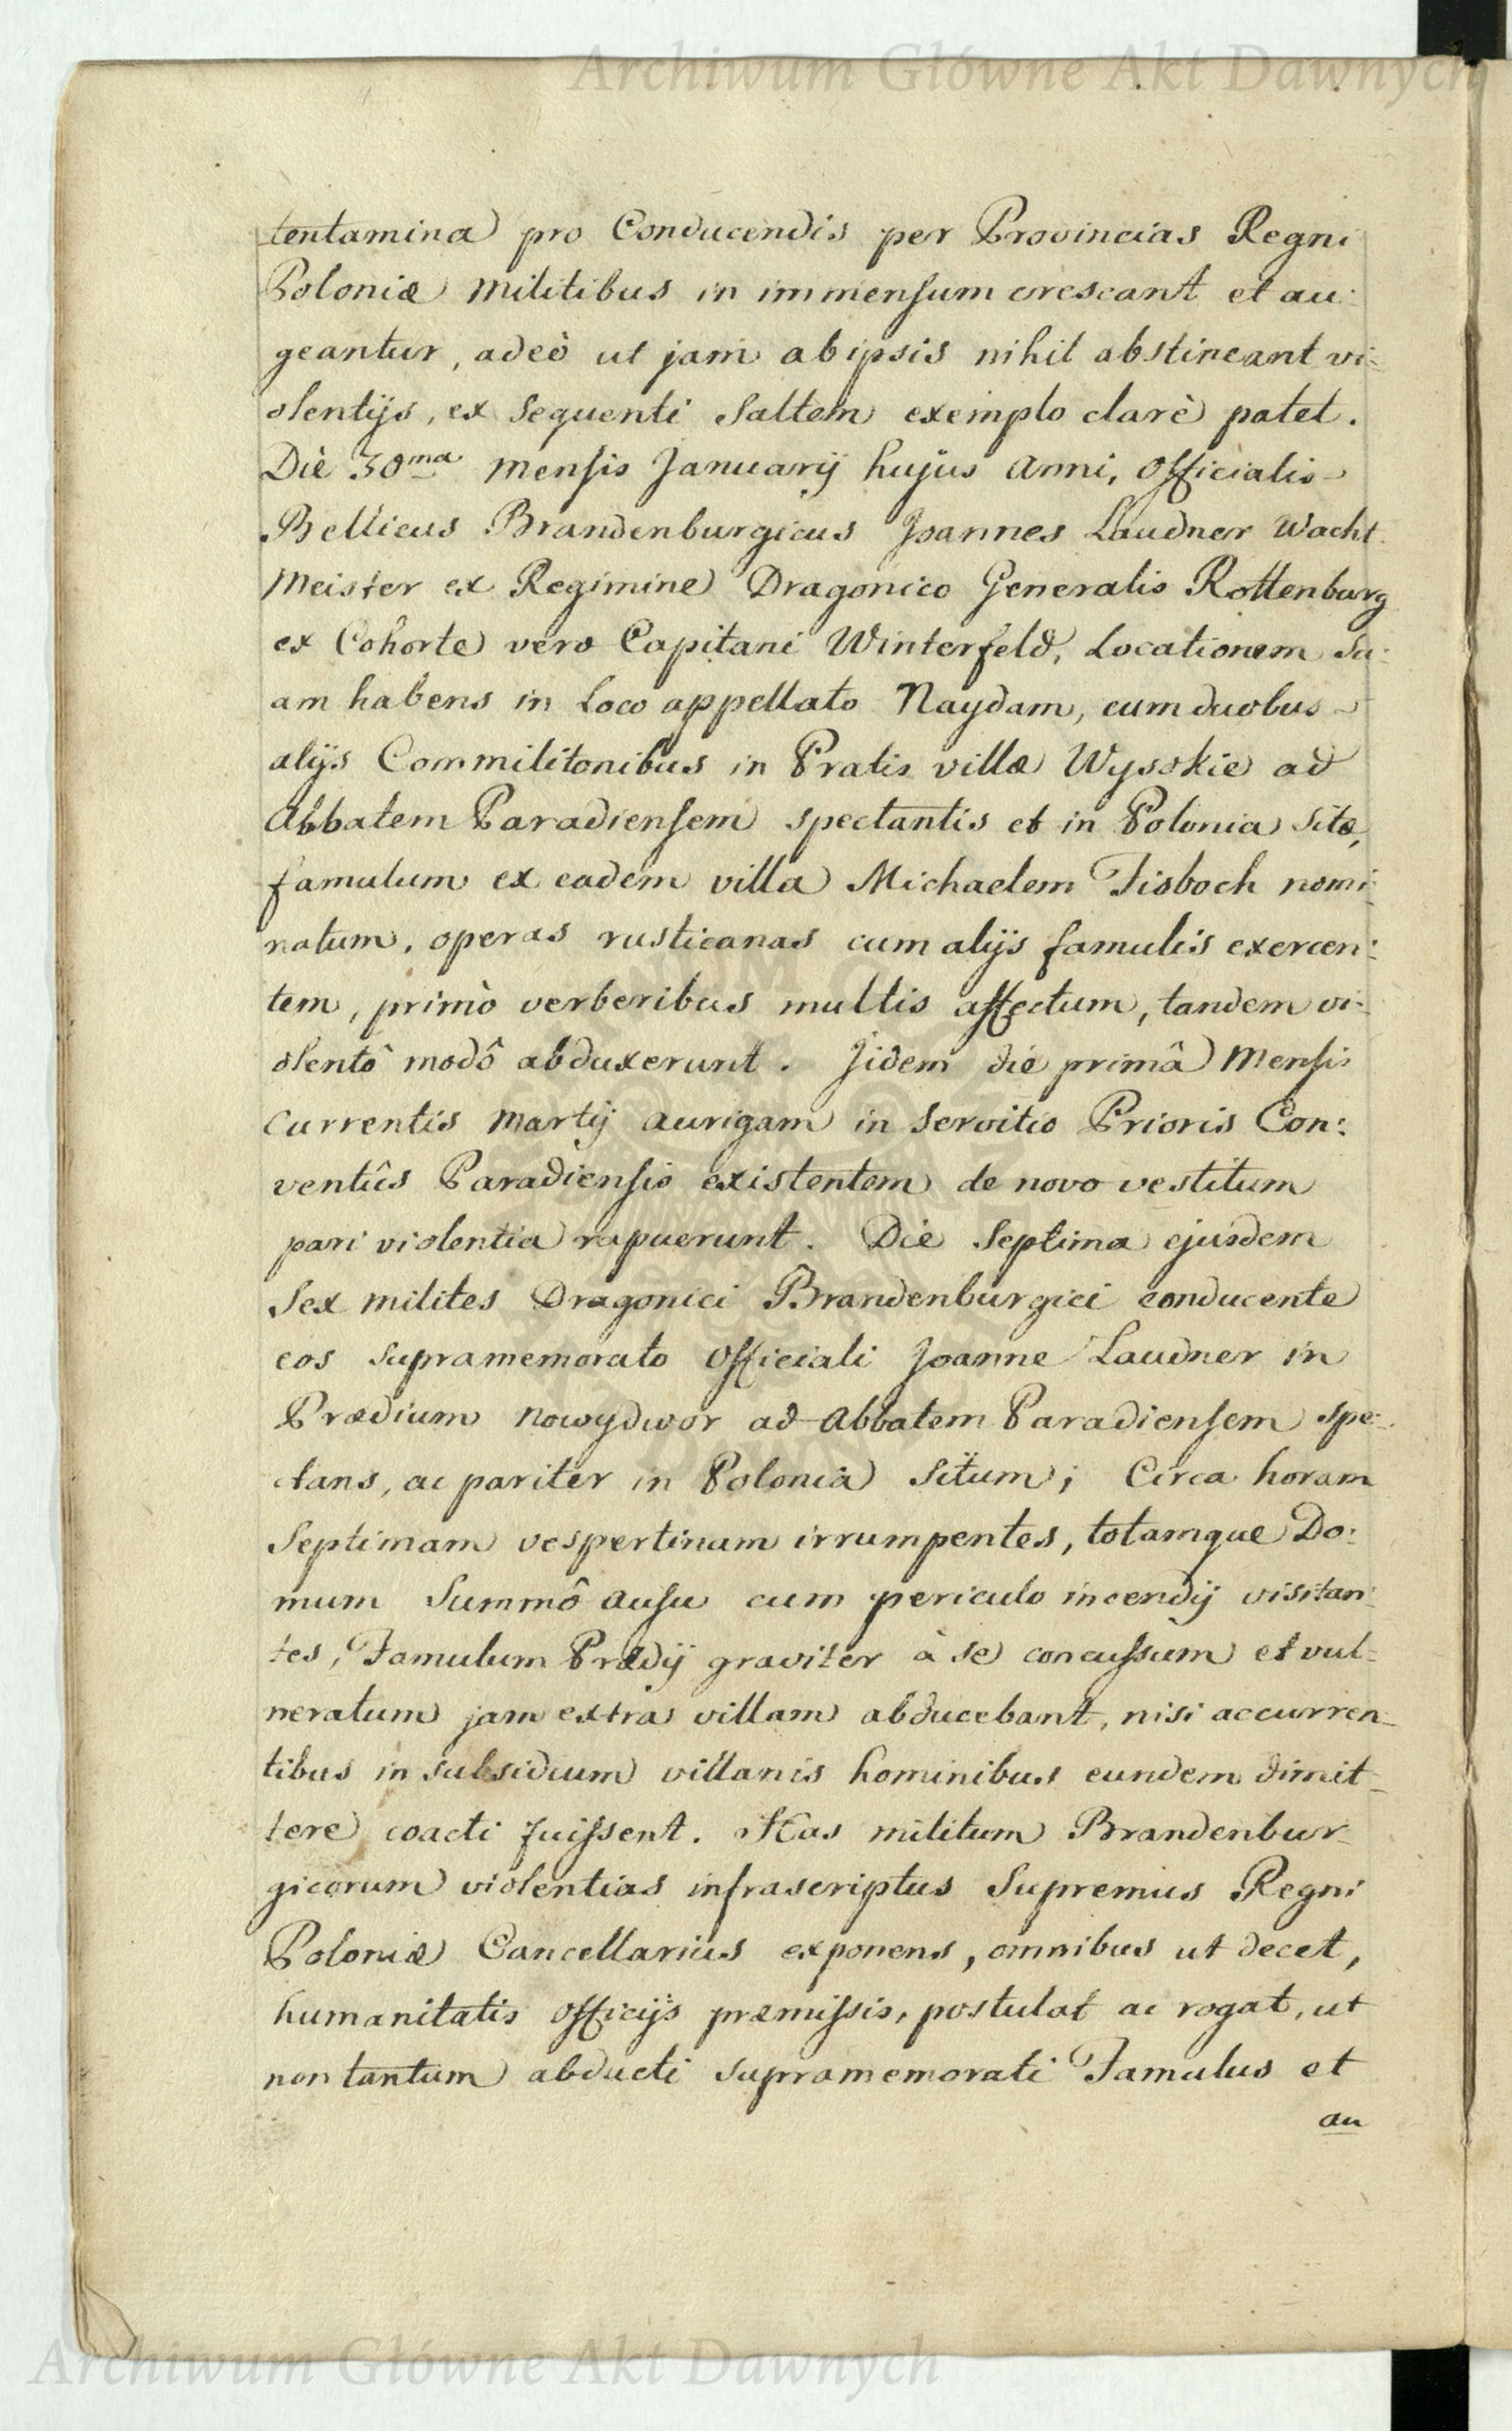 Archiwum Główne Akt Dawnych
tentamina pro Conducendis per Provincias Regni
Poloniæ militibus in immensum crescant et au:
geantur, adeò ut jam ab ipsis nihil abstineant vi-
olentijs, ex sequenti saltem exemplo clarè patet.
Die 30ma mensis Januarij hujus anni, Officialis
Bellicus Brandenburgicus Joannes Laudner Wacht
Meister ex Regimine Dragonico Generalis Rottenburg
ex Cohorte vero Capitani Winterfeld, Locationem su:
am habens in Loco appellato Naydam, cum duobus
alijs Commilitonibus in Pratis villæ Wysokie ad
Abbatem Paradiensem spectantis et in Polonia sitæ,
famulum ex eadem villa Michaelem Fisboch nomi:
natum, operas rusticanas cum alijs famulis exercen:
tem, primò verberibus multis affectum, tandem vi:
olentô modô abduxerunt. Jidem die primâ Mensis
Currentis Martij aurigam in servitio Prioris Con:
ventûs Paradiensis existentem de novo vestitum
pari violentia rapuerunt. Die Septima ejusdem
Sex milites Dragonici Brandenburgici conducente
eos supramemorato Officiali Joanne Laudner in
Prædium Nowydwor ad Abbatem Paradiensem spe:
ctans, ac pariter in Polonia situm; Circa horam
Septimam vespertinam irrumpentes, totamque Do:
mum Summô ausu cum periculo incendij visitan:
tes, Famulum Prædij graviter à se concussum et vul-
neratum jam extra villam abducebant, nisi accurren-
tibus in subsidium villanis hominibus eundem dimit-
tere coacti fuissent. Has militum Brandenbur-
gicorum violentias infrascriptus Supremus Regni
Poloniæ Cancellarius exponens, omnibus ut decet,
humanitatis officijs præmissis, postulat ac rogat, ut
non tantum abducti supramemorati Famulus et
au
Archiwum Główne Akt Dawnych